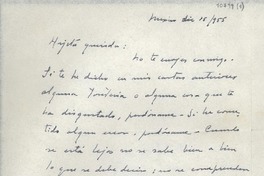 Mexico dic 15/955
Hijita querida:
No te enojes conmigo.
Si te he dicho en mis cartas anteriores
alguna tontería o alguna cosa que te
ha disgustado, perdóname. Si he come-
tido algun error, perdóname - Cuando
se está lejos no se sabe bien a bien
lo que se debe decir, no se comprenden